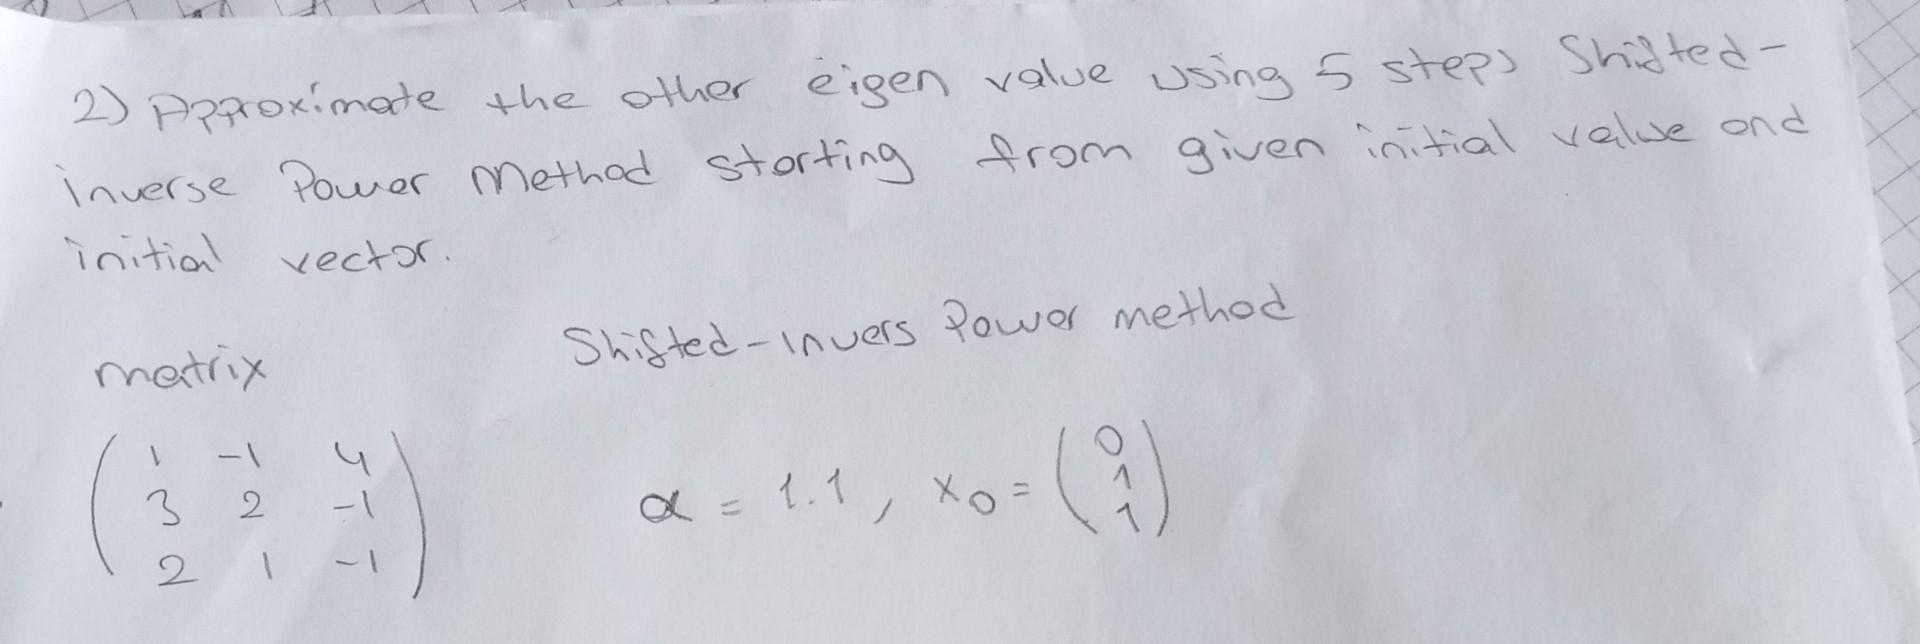 2) Approximate the other eigen value using 5 steps Shifted-
inverse Power Method starting from given initial value and
initial vector.
Shifted-invers Power method
matrix
1 -1 4
3 2 -1
2 1 -1
α = 1.1, x0 = (0 1 1)